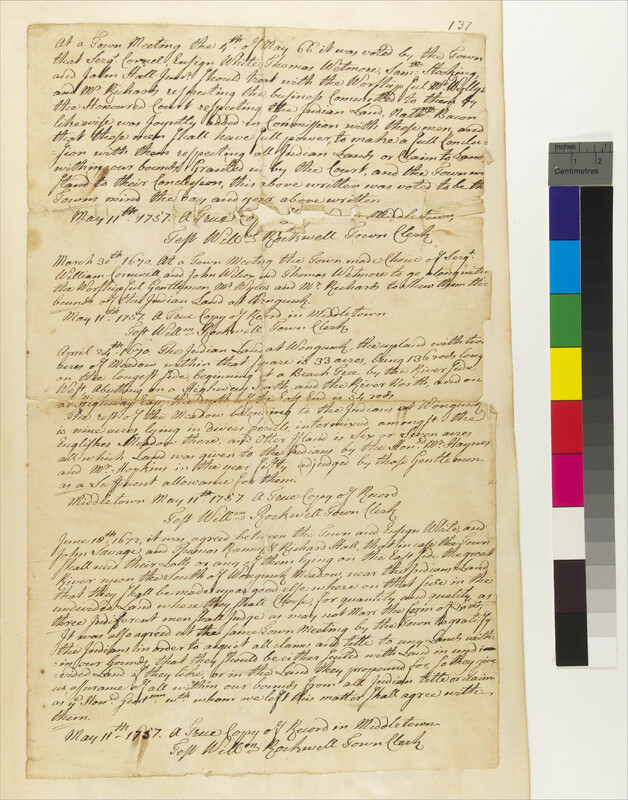 137
At a Town Meeting the 4th of May 66 it was voted by the Town
that Sergt Cornel, Ensign White Thomas Wetmore, Saml Stocking
and John Hall Junr Should treat with the Worshipful Mr Wyllys
and Mr Richards respecting the business Committed to them by
the Honoured Court respecting the Indian Land, Nathl Bacon
likewise was Joyntly added in Commission with those men, and
that those men Shall have full power, to make a full Conclu-
sion with them respecting all Indian Lands or Claim to Land
within our bounds Granted us by the Court, and the Town to
Stand to their Conclusion, this above written was voted to be the
Towns mind the day and year above written
May 11th 1757. A True Middletown
Test Willm Rockwell Town Clerk
March 30th 1670. At a Town Meeting the Town made Choice of Sergt
William Cornwell, and John Wilcox and Thomas Wetmore to go along with
the Worshipful Gentlemen Mr Wyles and Mr Richards to Shew them the
bounds of the Indian Land at Wonguck
May 11th 1757. A True Copy of Record in Middletown
Test Willm Rockwell Town Clerk
April 24th 1670. The Indian Land at Wonguck the upland with two
acres of Meadow within that Square is 33 acres, being 136 rods long
on the longest Side, beginning at a Beach Tree by the River Side
West, Abutting on a Highway South, and the River North, and on
an Highway East, the Depth of the End is 54 rods
The rest of the Meadow belonging to the Indians at Wonguck
is nine acres lying in divers percels intermixed amongst the
Englishes Meadow there, and Other Island is Sex or Seven acres,
all which Land was given to the Indians by the Hond Mr Haynes
and Mr Hopkins in the year fifty adjudged by those Gentlemen
as a Sufficient allowance for them.
Middletown May 11th 1757 A True Copy of Record
Test Willm Rockwell Town Clerk
June 18th 1672, it was agreed between the Town and Ensign White and
John Savage, and Thomas Ranny & Richard Hall, that in case the Town
Shall need their Lotts or any of them lying on the East Side the great
River upon the South of Wonguck Meadow, near the Indians Land
that they Shall be made up as good else where on that Side in the
undivided Land where they Shall Chose, for quantity and quality, as
three Indifferent men Shall Judge as may not Marr the form of Lotts,
It was also agreed at the Same Town Meeting by the Town to gratify
the Indians in order to acquit all claims and title to any Lands with-
-in our bounds, that they Should be either suited with Land in undiv-
-vided Land if they like, or in the Land they propound for, So they give
us assurance of all within our bounds from all Indian title or claim
as ye Honrd Gentmn with whom we left this matter Shall agree with
them.
May 11th 1757 A True Copy of Record in Middletown
Test Willm Rockwell Town Clerk
Inches
1 2
Centimetres